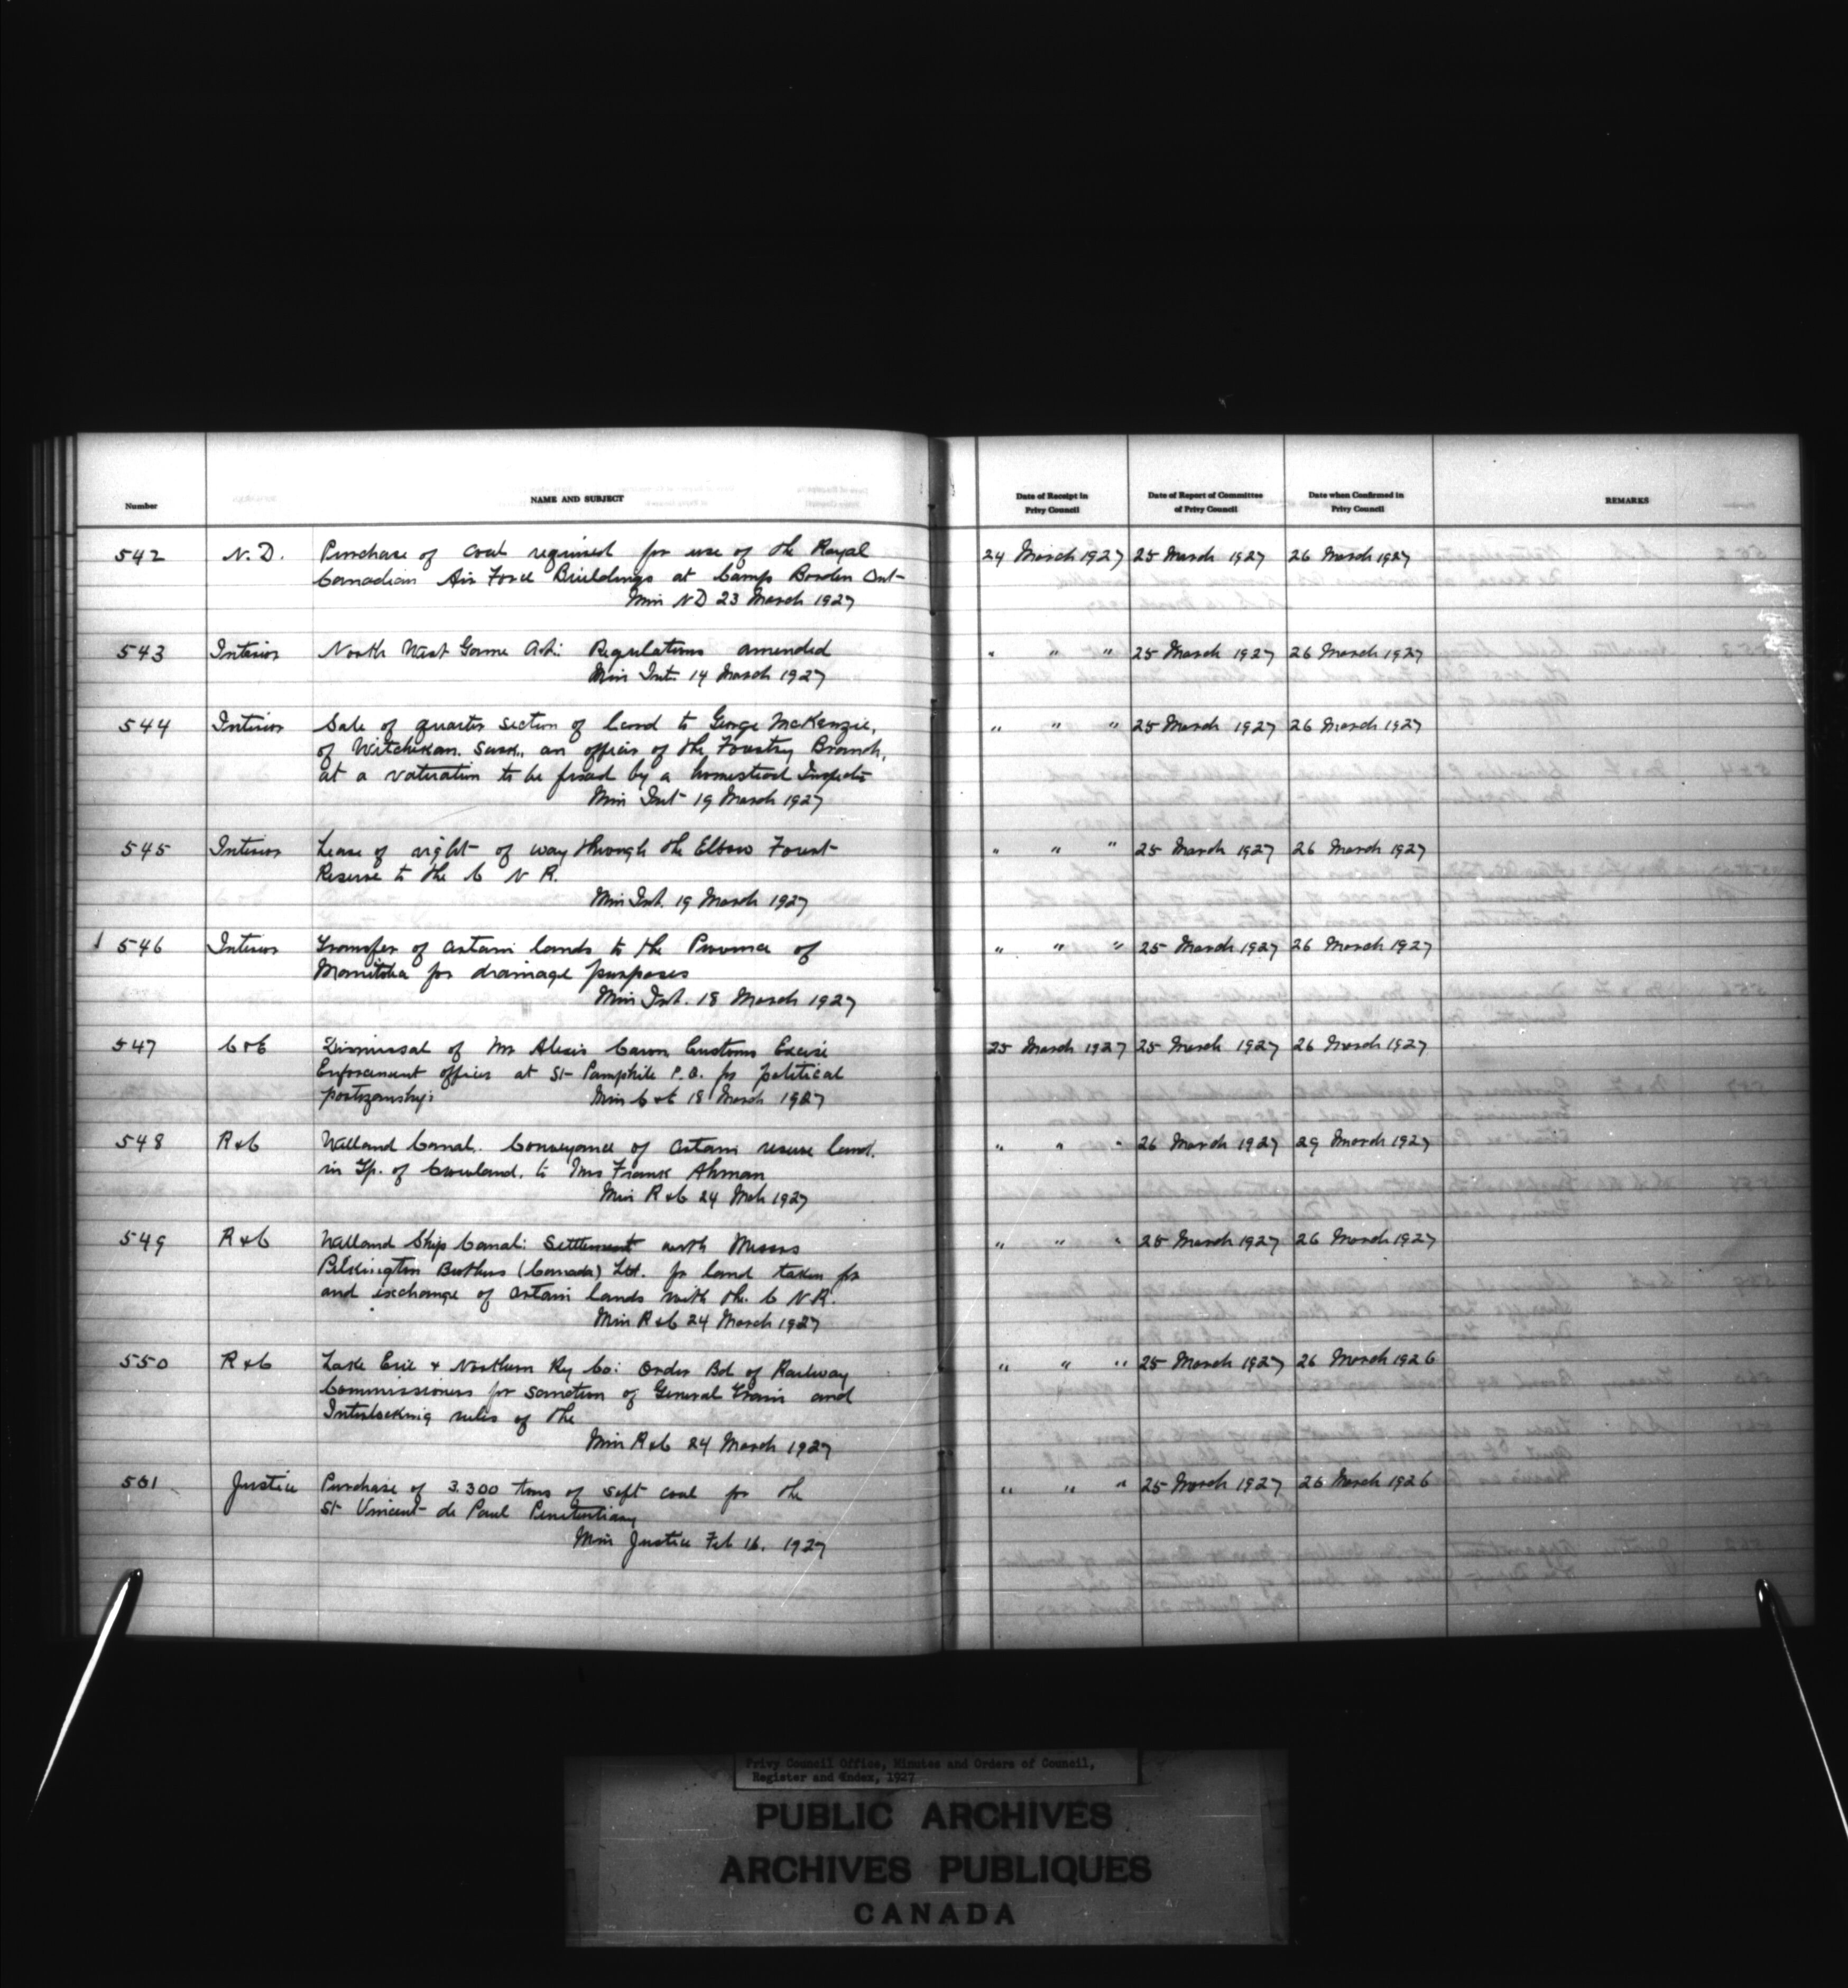 Number
NAME AND SUBJECT
Date of Receipt in Privy Council
Date of Report of Committee of Privy Council
Date when Confirmed in Privy Council
REMARKS
542 N. D. Purchase of coal required for use of the Royal 24 March 1927 25 March 1927 26 March 1927
Canadian Air Force Buildings at Camp Borden Ont
Min N D 23 March 1927
543 Interior North West Game Act: Regulations amended " " " 25 March 1927 26 March 1927
Min Int 14 March 1927
544 Interior Sale of quarter section of land to George McKenzie, " " " 25 March 1927 26 March 1927
of Witchekan. Sask., an officer of the Forestry Branch,
at a valuation to be fixed by a homestead Inspector
Min Int 19 March 1927
545 Interior Lease of right of way through the Elbow Forest " " " 25 March 1927 26 March 1927
Reserve to the C N R.
Min Int. 19 March 1927
546 Interior Transfer of certain lands to the Province of " " " 25 March 1927 26 March 1927
Manitoba for drainage purposes
Min Int. 18 March 1927
547 C & E Dismissal of Mr Alexis Caron Customs Excise 25 March 1927 25 March 1927 26 March 1927
Enforcement officer at St Pamphile P.Q. for political
partizanship
Min C & E 18 March 1927
548 R & C Welland Canal. Conveyance of certain reserve land. " " " 26 March 1927 29 March 1927
in Tp. of Crowland. to Mrs Frank Ahman
Min R & C 24 Mch 1927
549 R & C Welland Ship Canal: Settlement with Messrs " " " 25 March 1927 26 March 1927
Pilkington Brothers (Canada) Ltd. for land taken for
and exchange of certain lands with the C N R.
Min R & C 24 March 1927
550 R & C Lake Erie & Northern Ry Co: Order Bd of Railway " " " 25 March 1927 26 March 1926
Commissioners for sanction of General Train and
Interlocking rules of the
Min R & C 24 March 1927
551 Justice Purchase of 3.300 tons of soft coal for the " " " 25 March 1927 26 March 1926
St Vincent de Paul Penitentiary
Min Justice Feb 16. 1927
Privy Council Office, Minutes and Orders of Council,
Register and Index, 1927
PUBLIC ARCHIVES
ARCHIVES PUBLIQUES
CANADA